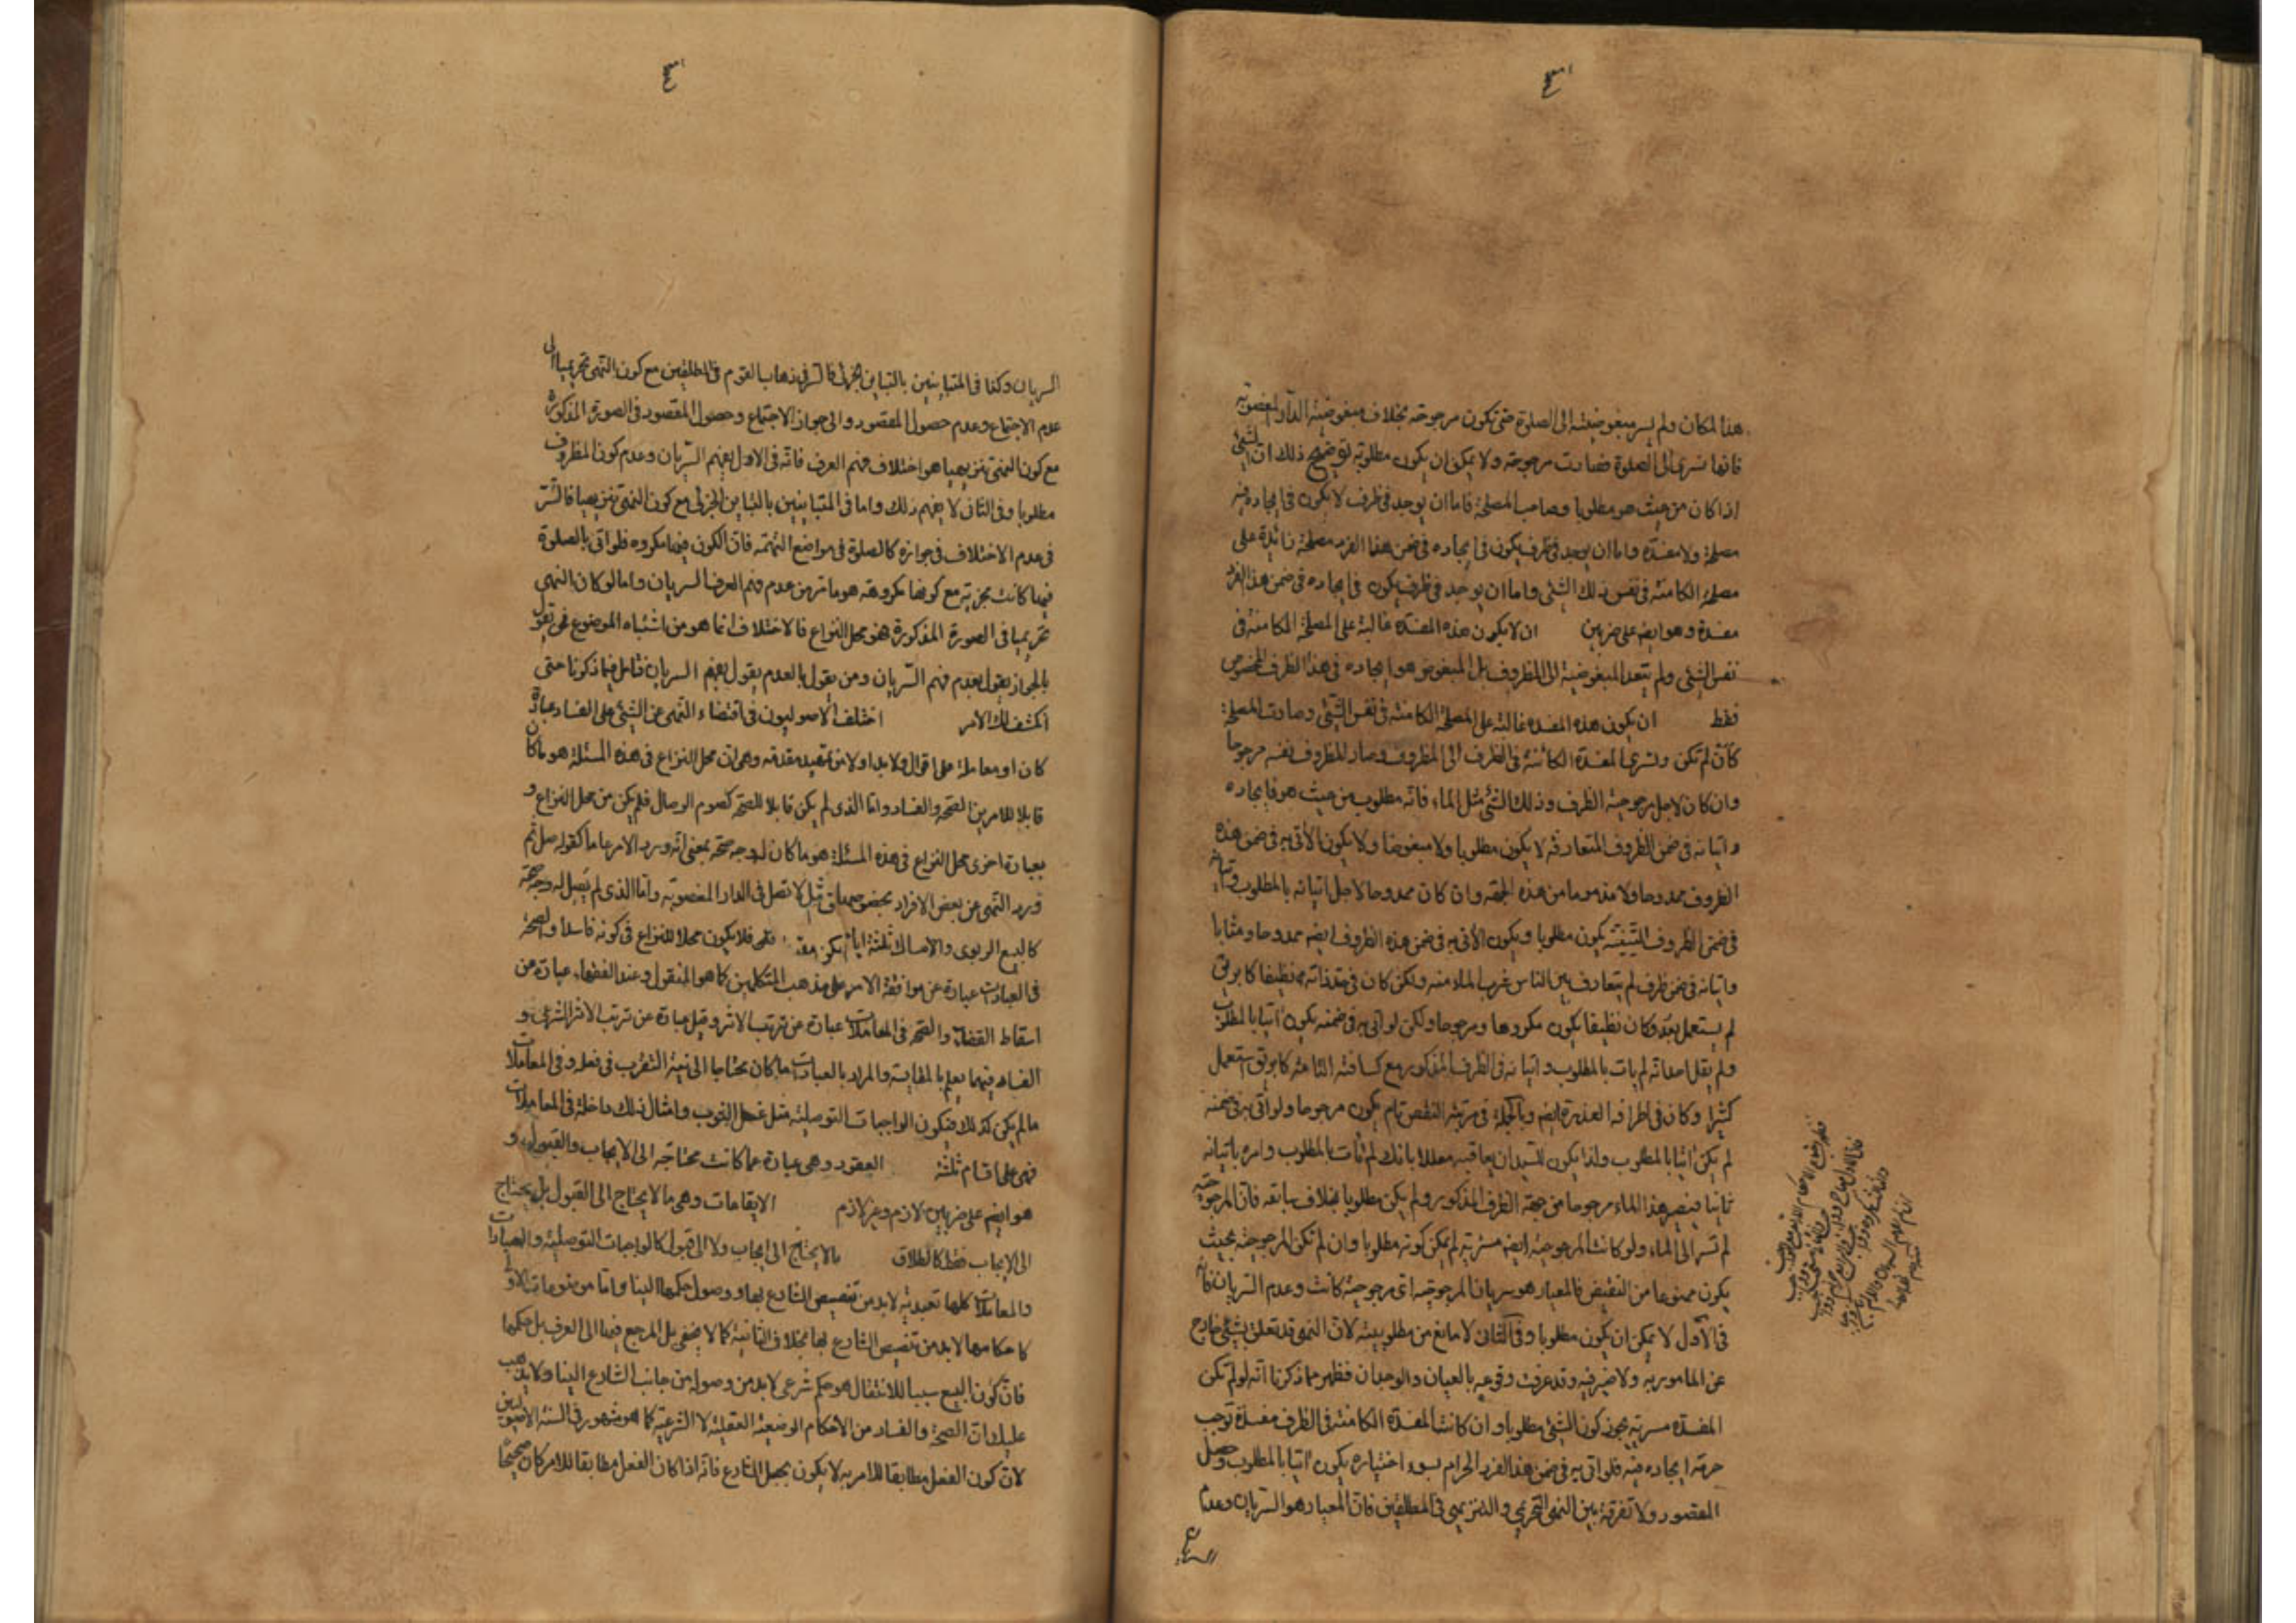 هذا المكان ولم يسر مبغوضيته الى الصلوة حتى تكون مرجوحة بخلاف مبغوضية الدار المغصوبة
فانها تسرى الى الصلوة فصارت مرجوحة ولا يمكن ان يكون مطلوبة توضيح ذلك ان الشئ
اذا كان من حيث هو مطلوبا وصاحب المصلحة فاما ان يوجد فى ظرف لا يكون فى ايجاده فيه
مصلحة ولا مفسدة واما ان يوجد فى ظرف يكون فى ايجاده فى ضمن هذا الفرد مصلحة زائدة على
مصلحة الكامنة فى نفس ذلك الشئ واما ان يوجد فى ظرف يكون فى ايجاده فى ضمن هذا الفرد
مفسدة وهو ايضا على ضربين ان لا يكون هذه المفسدة غالبة على المصلحة الكامنة فى
نفس الشئ ولم يتعد المبغوضية الى المظروف بل المبغوض هو ايجاده فى هذا الظرف المخصوص
فقط ان يكون هذه المفسدة غالبة على المصلحة الكامنة فى نفس الشئ وصارت المصلحة
كأن لم تكن وتسرى المفسدة الكائنة فى الظرف الى المظروف وصار المظروف نفسه مرجوحا
وان كان لاجل مرجوحية الظرف وذلك الشئ مثل الماء فانه مطلوب من حيث هو فايجاده
واتيانه فى ضمن الظروف المتعارفة لا يكون مطلوبا ولا مبغوضا ولا يكون الآتى به فى ضمن هذه
الظروف ممدوحا ولا مذموما من هذه الجهة وان كان ممدوحا لاجل اتيانه بالمطلوب واتيانه
فى ضمن الظروف يكون مطلوبا ويكون الآتى به فى ضمن هذه الظروف ايضا ممدوحا ومثابا
واتيانه فى ضمن ظرف لم يتعارف بين الناس شرب الماء منه ولكن كان فى حد ذاته نظيفا كابريق
لم يستعمل بعد وكان نظيفا يكون مكروها ومرجوحا ولكن لو اتى به فى ضمنه يكون آتيا بالمطلوب
ولم يقل احد انه لم يات بالمطلوب واتيانه فى الظرف المذكور مع كسافته التامة كابريق استعمل
كثيرا وكان فى اطرافه العذرة ايضا وبالجملة فى مرتبة النقص تام يكون مرجوحا ولو اتى به فى ضمنه
لم يكن آتيا بالمطلوب ولذا يكون للسيد ان يعاقبه معللا بانك لم تأت بالمطلوب وامره باتيانه
ثانيا فيصير هذا الماء مرجوحا من جهة الظرف المذكور ولم يكن مطلوبا بخلاف سابقه فان المرجوحية
لم تسر الى الماء ولو كانت المرجوحية ايضا مسرية لم يمكن كونه مطلوبا وان لم تكن المرجوحية بحيث
يكون ممنوعا من النقيض فالمعيار هو سريان المرجوحية اى مرجوحية كانت وعدم السريان فانه
فى الاول لا يمكن ان يكون مطلوبا وفى الثانى لا مانع من مطلوبيته لان النهى قد تعلق بشئ خارج
عن المامور به ولا ضير فيه وقد عرفت وقوعه بالعيان والوجدان فظهر مما ذكرنا انه لو لم تكن
المفسدة مسرية يجوز كون الشئ مطلوبا وان كانت المفسدة الكامنة فى الظرف مفسدة توجب
حرمة ايجاده فيه فلو اتى به فى ضمن هذا الفرد الحرام بسوء اختياره يكون آتيا بالمطلوب وحصل
المقصود ولا تفرقة بين النهى التحريمى والتنزيهى فى المطلقين فان المعيار هو السريان وعدم
السريان
السريان وكذا فى المتباينين بالتباين الجزئى فالسر فى ذهاب القوم فى المطلقين مع كون النهى تحريميا الى
عدم الاجتماع وعدم حصول المقصود والى جواز الاجتماع وحصول المقصود فى الصورة المذكورة
مع كون النهى تنزيهيا هو اختلاف فهم العرف فانه فى الاول يفهم السريان وعدم كون المظروف
مطلوبا وفى الثانى لا يفهم ذلك واما فى المتباينين بالتباين الجزئى مع كون النهى تنزيهيا فالسر
فى عدم الاختلاف فى جوازه كالصلوة فى مواضع التهمة فان الكون فيها مكروه فلو اتى بالصلوة
فيها كانت مجزية مع كونها مكروهة هو ما مر من عدم فهم العرف السريان واما لو كان النهى
تحريميا فى الصورة المذكورة فهو محل النزاع فالاختلاف انما هو من اشتباه الموضوع فمن يقول
بالجواز يقول بعدم فهم السريان ومن يقول بالعدم يقول بفهم السريان فتامل فيما ذكرنا حتى
انكشف لك الامر اختلف الاصوليون فى اقتضاء النهى عن الشئ على الفساد عبادة
كان او معاملة على اقوال ولا بد اولا من تمهيد مقدمة وهى ان محل النزاع فى هذه المسئلة هو ما كان
قابلا للامرين الصحة والفساد واما الذى لم يكن قابلا للصحة كصوم الوصال فلم يكن من محل النزاع و
بعبارة اخرى محل النزاع فى هذه المسئلة هو ما كان له وجه صحة بمعنى انه ورد الامر عاما كقوله صل ثم
ورد النهى عن بعض الافراد مثل لا تصل فى الدار المغصوبة واما الذى لم يصل له وجه صحة
كالبيع الربوى والامساك ثلثة ايام فلا يكون محلا للنزاع فى كونه فاسدا والصحة
فى العبادات عبارة عن موافقة الامر على مذهب المتكلمين كما هو المنقول وعند الفقهاء عبارة عن
اسقاط القضاء والصحة فى المعاملات عبارة عن ترتب الاثر وقيل عبارة عن ترتب الاثر الشرعى و
الفساد فيهما يعلم بالمقايسة والمراد بالعبادات ما كان محتاجا الى نية التقرب فى فعله وفى المعاملات
ما لم يكن كذلك فيكون الواجبات التوصلية مثل غسل الثوب وامثال ذلك داخلة فى المعاملات
فهى على اقسام ثلثة العقود وهى عبارة عما كانت محتاجة الى الايجاب والقبول و
هو ايضا على ضربين لازم وغير لازم الايقاعات وهى ما لا يحتاج الى القبول بل يحتاج
الى الايجاب فقط كالطلاق ما لا يحتاج الى ايجاب ولا الى قبول كالواجبات التوصلية والعبادات
والمعاملات كلها تعبدية لا بد من تنصيص الشارع بها ووصول حكمها الينا واما موضوعات الاول
كاحكامها لا بد من تنصيص الشارع بها بخلاف الثانية كما لا يخفى بل المرجع فيها الى العرف بل حكمها
فان كون البيع سببا للانتقال هو حكم شرعى لا بد من وصوله من جانب الشارع الينا ولا يذهب
عليك ان الصحة والفساد من الاحكام الوضعية العقلية لا الشرعية كما هو مشهور فى السنة الاصوليين
لان كون الفعل مطابقا للامر به لا يكون بجعل الشارع فانه اذا كان الفعل مطابقا للامر كان صحيحا